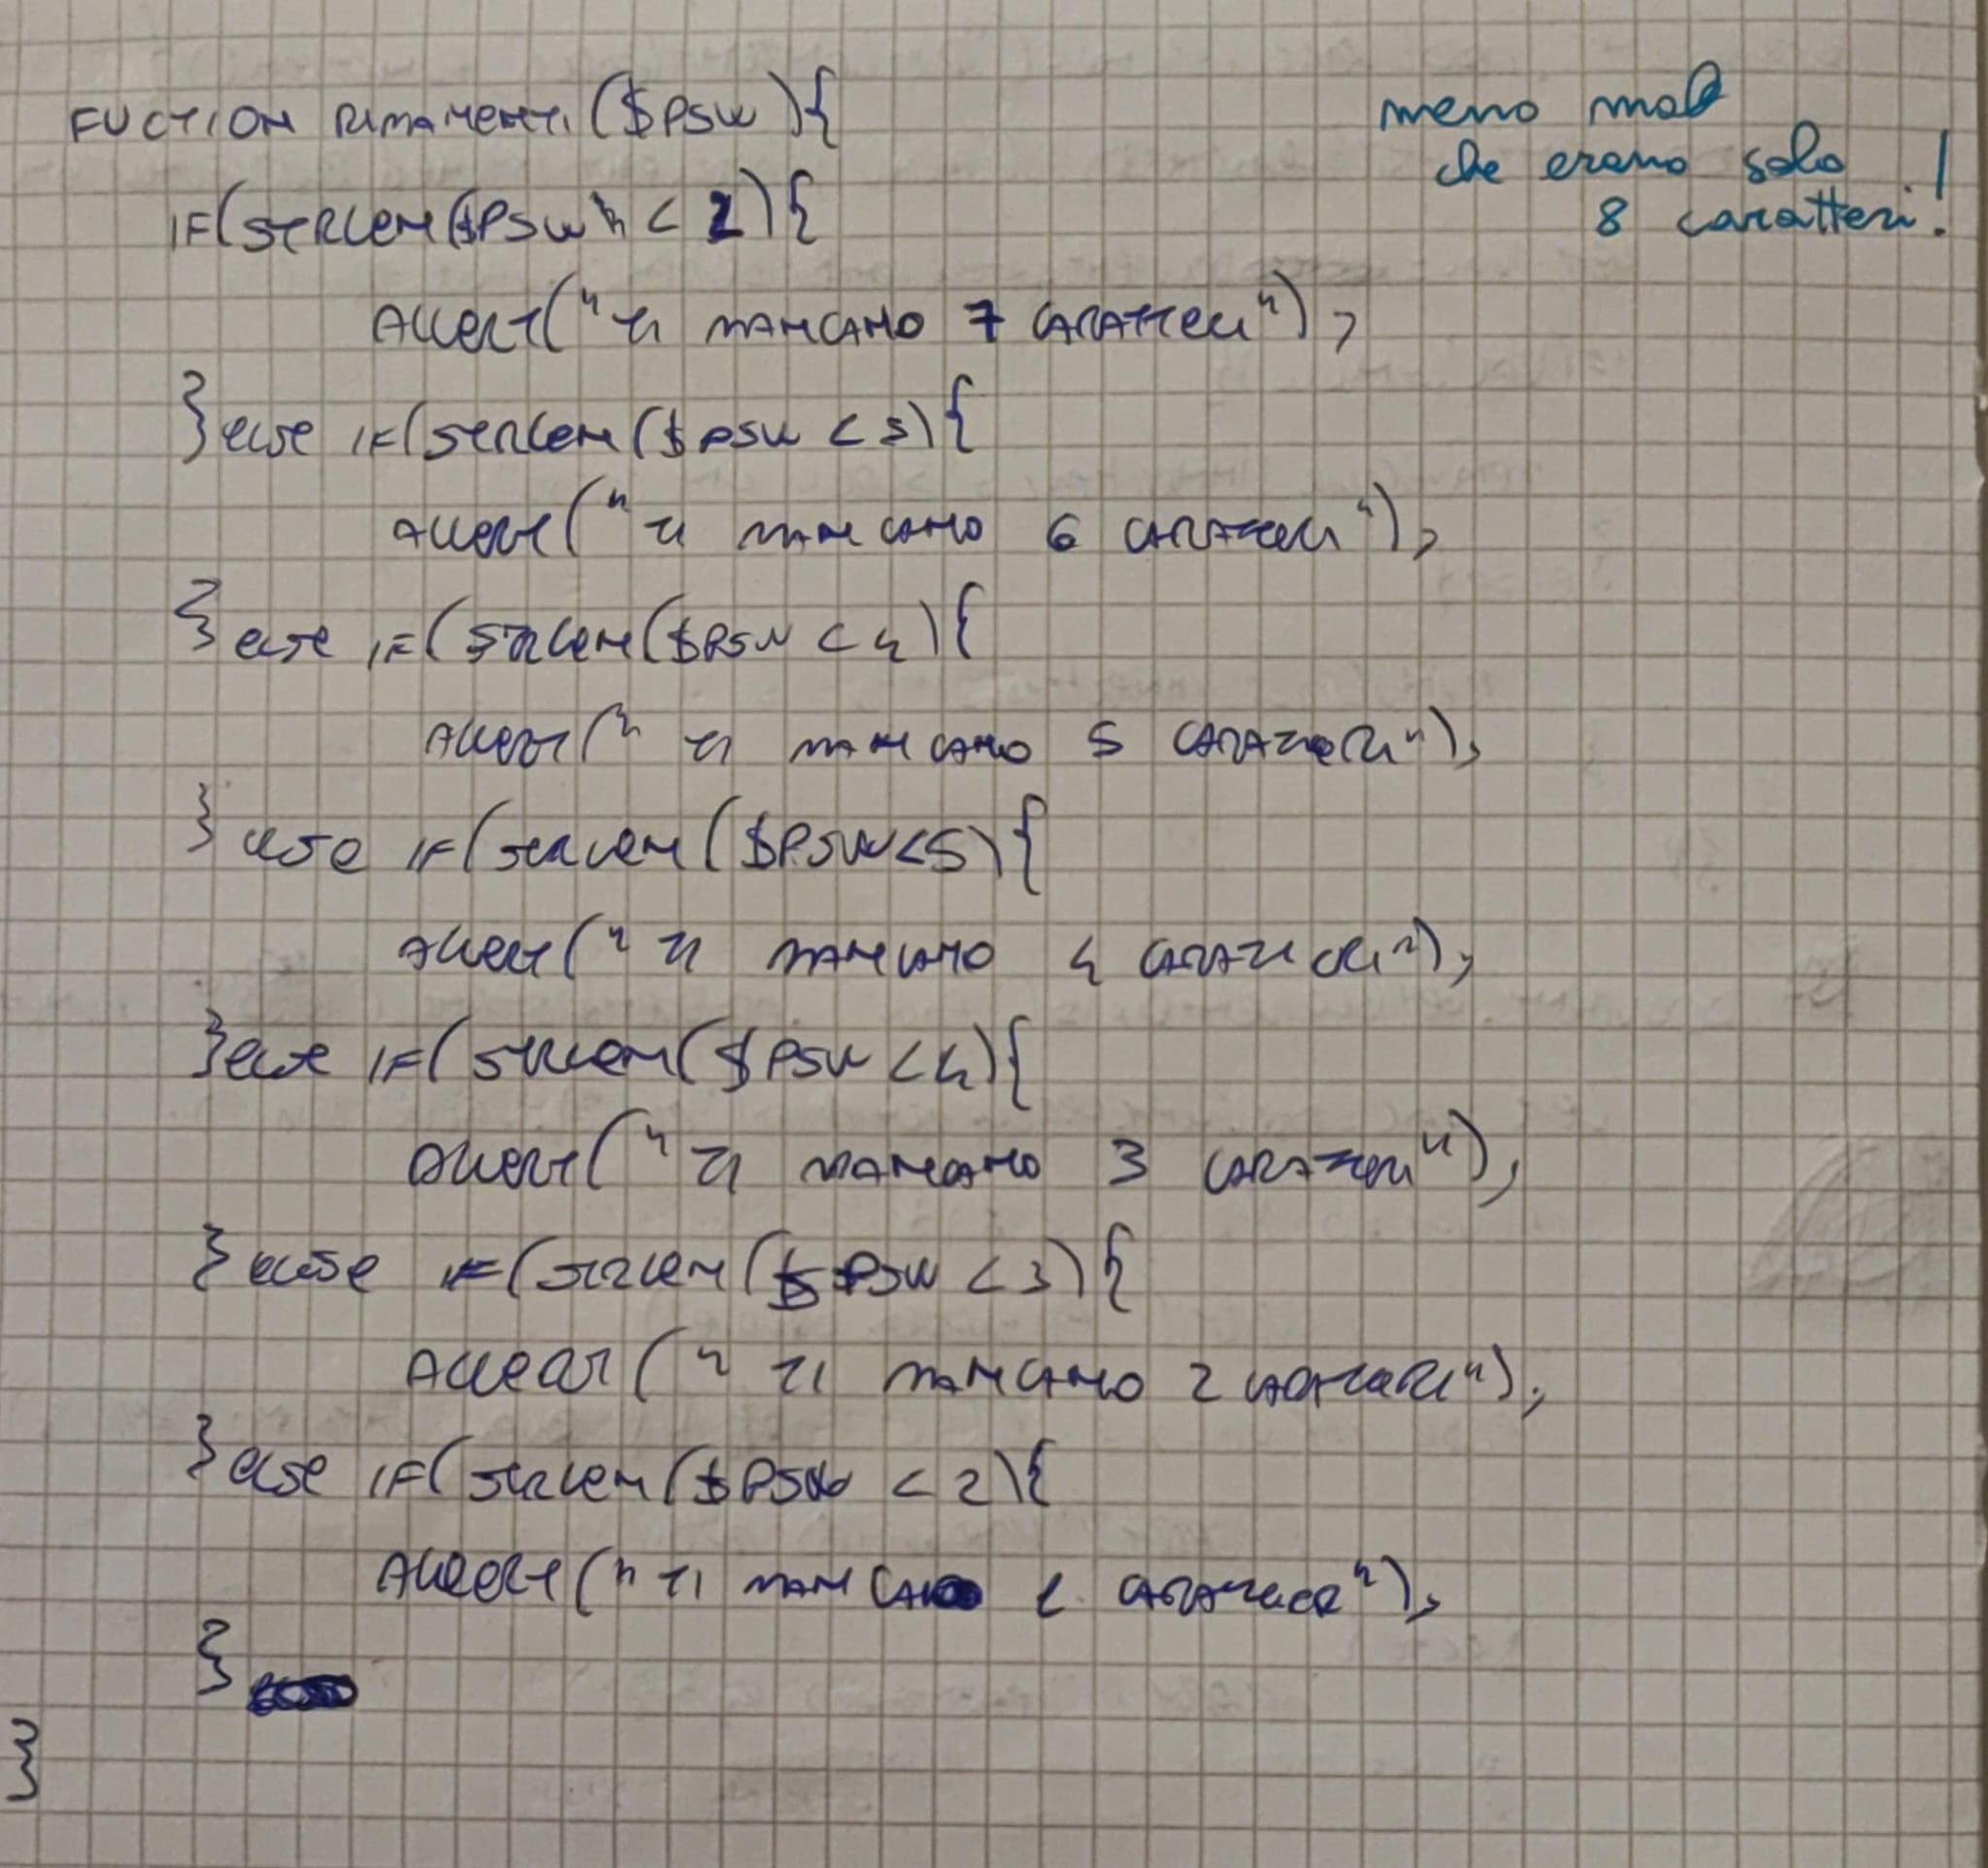 FUCTION RIMANENTI ($PSW){
meno male
che erano solo
8 caratteri!
IF(STRLEN($PSW) < 2){
ALLERT("TI MANCANO 7 CARATTERI");
}else IF(STRLEN($PSW < 3){
ALLERT("TI MANCANO 6 CARATTERI");
}else IF(STRLEN($PSW < 4){
ALLERT("TI MANCANO 5 CARATTERI");
}else IF(STRLEN($PSW<5){
ALLERT("TI MANCANO 4 CARATTERI");
}else IF(STRLEN($PSW < 4){
ALLERT("TI MANCANO 3 CARATTERI");
}else IF(STRLEN($PSW < 3){
ALLERT("TI MANCANO 2 CARATTERI");
}else IF(STRLEN($PSW < 2){
ALLERT("TI MANCA 1 CARATTERE");
}
}